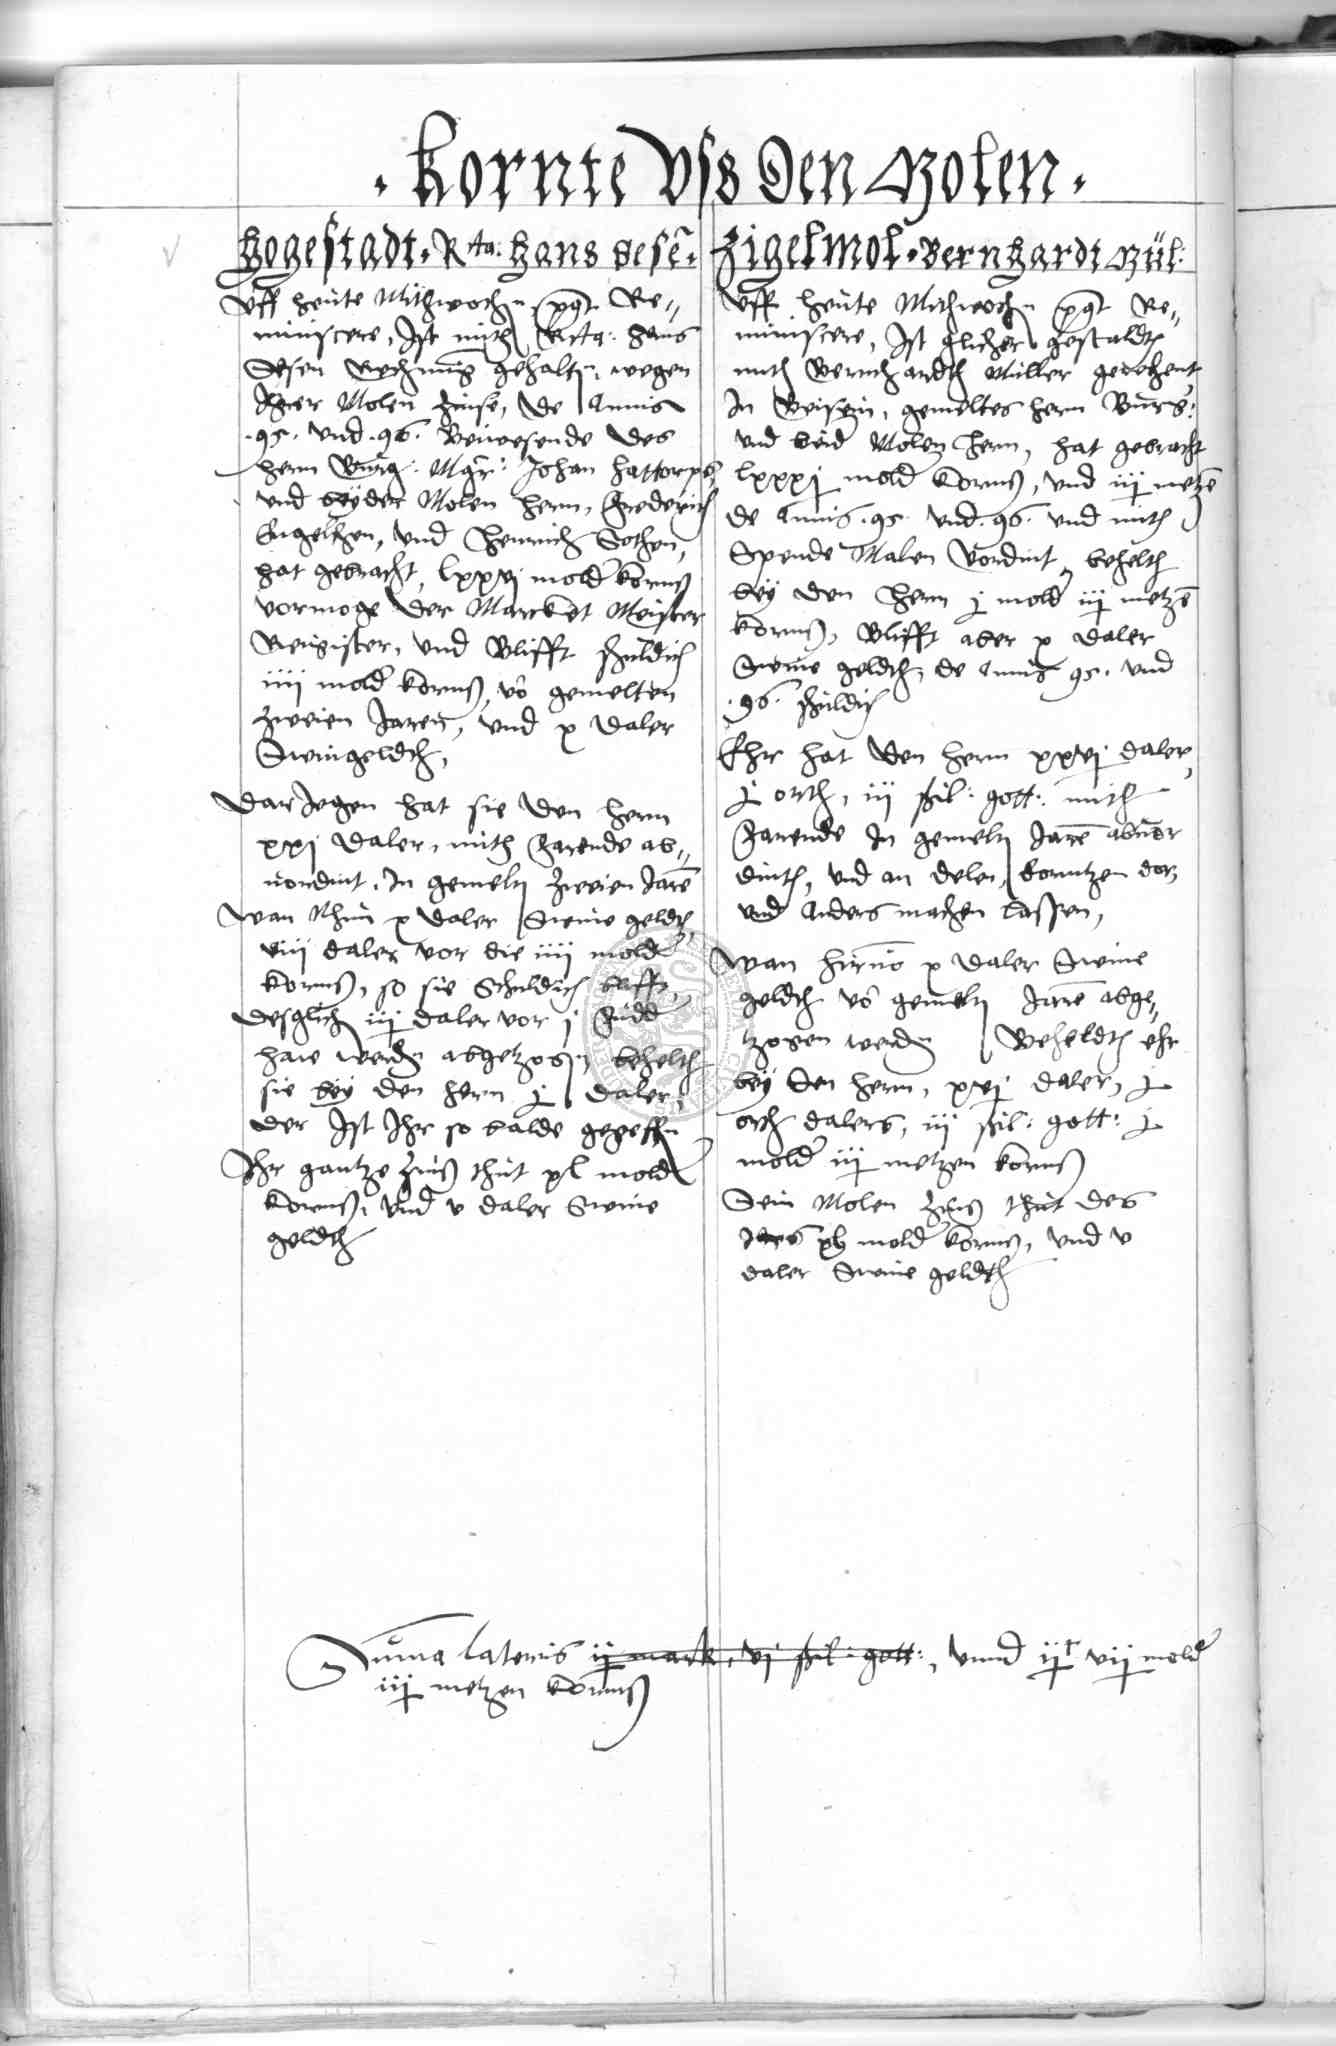 · Kornte Vss Den Molen ·
Hogestadt · Rta: Hans Desē ·
Vff heute Mithwochn Reˮ
miniscere, Ist mith Rcta: Hans
Desen Rechnung gehaltn, wegen
Ihrer Molen Zinse, de Annis
·95· vnd ·96· Beiwesende des
hern Burg: Mgr: Johan Hattorps,
vnd beyder Molen hern, Frederich
Engelken, vnd Henrich Sothen,
hat gebracht, lxxvj mold korns
vormoge der Marckt Meister
Register, vnd Blifft schuldich
iiij mold korns, vō gemelten
zweien Jaren, vnd x daler
Swingeldth,
Dar Iegen hat sie den hern
xxj daler, mith Farende abˮ
uordint, In gemeltn zweien Jarē
Wan Nhun x daler Sweine geldth,
viij daler vor die iiij mold
korns, so sie Schuldich blifft,
desglich iij daler vor j Fudd
haw werdn abgetzogn, behelth
sie bey den hern j daler,
der Ist Ihr so balde gegeffn
Ihr gantze Zins thut xl mold
korns, vnd v daler Sweine
geldth
Zigelmol · Bernhardt Mül:
Vff heute Mithwochn Reˮ
miniscere, Ist glicher gestaldth
mith Bernhardth Müller gerechent,
In Beisein, gemeltes hern Burg:
vnd beid Molen hern, hat gebracht
lxxxj mold korns, vnd iij metzē
de Annis ·95· vnd ·96· vnd mith
Spende Malen vordint, behelth
bey den hern j mold iij metzē
korns, Blifft aber x daler
Sweine geldth, de Annis 95· vnd
·96· schuldich
Ehr hat den hern xxvj daler,
j orth, iij schil: gott: mith
Farende In gemeltn Jarē abuor
dinth, vnd an delen,
vnd anders machen lassen,
Wan hiruō x daler Sweine
geldth vō gemeltn Jarē abgeˮ
tzogen werden Beheldth ehr
bey den hern, xvj daler, j
orth dalers, iij schil: gott: j
mold iij metzen korns
Sein Molen Zins thut des
Jares xl mold korns, vnd v
daler Sweine geldth
Suma lateris ij mark, vj schil: gott:, vnnd ijᶜ vij mold
iij metzen korns